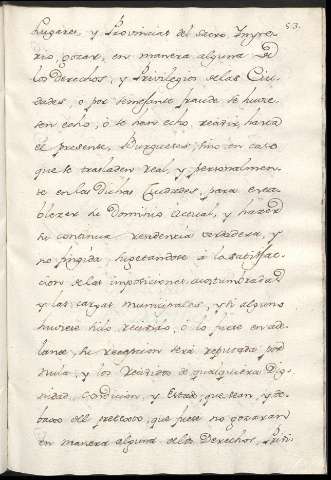 53.
Lugares, y Provincias del Sacro Impe-
rio, gozar, en manera alguna de
los Derechos, y Privilegios de las Ciu-
dades, o por semejante fraude se huvie-
sen echo, ò se han echo, recivir, hasta
el presente, Burgueses, sino en caso
que se trasladen real, y personalmen-
te en las dichas Ciudades, para esta-
blezer su Domicilio actual, y hazer
su continua residencia verdadera, y
no fingida, sugetandose à la satisfac-
cion de las imposiciones acostumbradas
y las cargas municipales, y si alguno
huviese sido recivido, ò lo fuese en ade-
lante, su recepcion será reputada por
nula, y los recividos de qualquiera Dig-
nidad, Condicion, y Estado que sean, y de-
baxo del pretexto, que fuere no gozaran
en manera alguna de los Derechos, Privi-